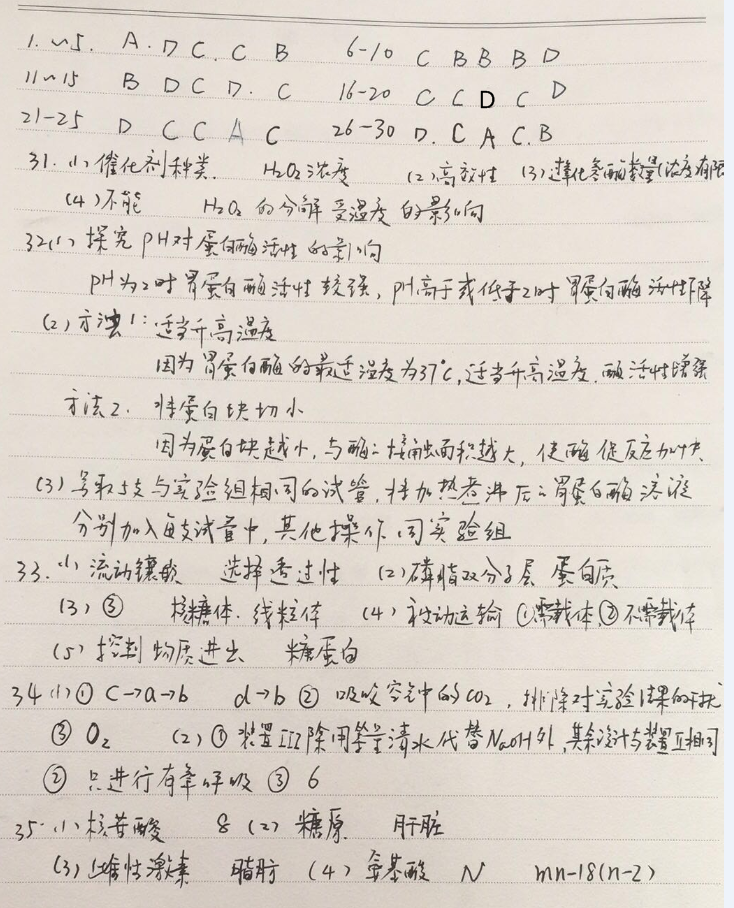 1.~5. A. D C. C B 6-10 C B B B D
11~15 B D C D. C 16-20 C C D C D
21-25 D C C A C 26-30 D. C A C. B
31. (1) 催化剂种类. H₂O₂浓度 (2) 高效性 (3) 过氧化氢酶数量(浓度)有限
(4) 不能 H₂O₂ 的分解受温度的影响
32(1) 探究pH对蛋白酶活性的影响
pH为2时胃蛋白酶活性较强, pH高于或低于2时胃蛋白酶活性下降
(2) 方法1: 适当升高温度
因为胃蛋白酶的最适温度为37℃, 适当升高温度. 酶活性增强
方法2. 将蛋白块切小
因为蛋白块越小, 与酶的接触面积越大, 使酶促反应加快
(3) 另取5支与实验组相同的试管, 将加热煮沸后的胃蛋白酶溶液
分别加入每支试管中, 其他操作同实验组
33. (1) 流动镶嵌 选择透过性 (2) 磷脂双分子层 蛋白质
(3) ③ 核糖体. 线粒体 (4) 被动运输 ①需载体, ②不需载体
(5) 控制物质进出 糖蛋白
34 (1) ① c→a→b d→b ② 吸收空气中的CO₂, 排除对实验结果的干扰
③ O₂ (2) ① 装置III除用等量清水代替NaOH外, 其余设计与装置II相同
② 只进行有氧呼吸 ③ 6
35. (1) 核苷酸 8 (2) 糖原 肝脏
(3) 雌性激素 脂肪 (4) 氨基酸 N mn-18(n-2)